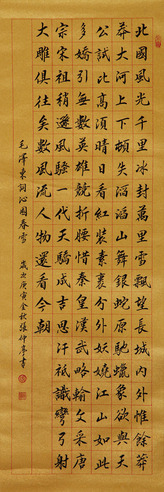 北國風光千里冰封萬里雪飄望長城内外惟餘莽
莽大河上下頓失滔滔山舞銀蛇原馳蠟象欲與天
公試比高須晴日看紅裝素裹分外妖嬈江山如此
多嬌引無數英雄競折腰惜秦皇漢武略輸文采唐
宗宋祖稍遜風騷一代天驕成吉思汗祇識彎弓射
大雕俱往矣數風流人物還看今朝
毛澤東詞沁園春雪 歲次庚寅金秋張仲亭書